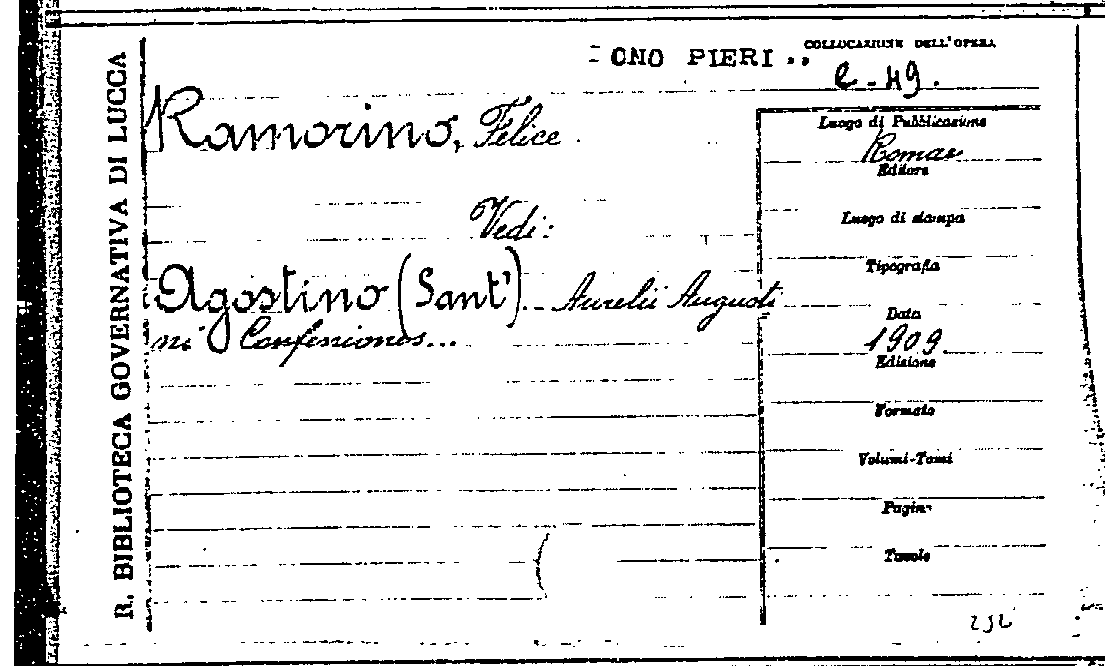 R. BIBLIOTECA GOVERNATIVA DI LUCCA
ONO PIERI
COLLOCAZIONE DELL'OPERA
Ramorino, Felice.
Vedi:
Agostino (Sant'). Aurelii Augusti
ni Confessiones...
Luogo di Pubblicazione
Romae
Editore
Luogo di stampa
Tipografia
Data
1909
Edizione
Formato
Volumi-Tomi
Pagine
Tavole
252